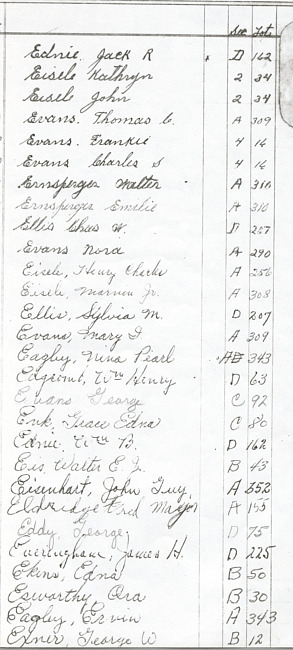 Sec Lot
Ednie, Jack R D 162
Eisele Kathryn 2 34
Eisele John 2 34
Evans. Thomas C. A 309
Evans. Frankie 4 16
Evans Charles S 4 16
Ernsperger Walter A 310
Ernsperger Emilie A 310
Ellis Chas W. D 207
Evans Nora A 290
Eisele, Henry Charles A 256
Eisele, Marvin Jr. A 308
Ellis, Sylvia M. D 207
Evans, Mary J. A 309
Eagley, Nina Pearl 343
Wm Henry D 63
Evans George C 92
Enk, Grace Edna C 80
Ednie, Wm B. D 162
Eis, Walter E. J. B 43
Eisenhart, John Guy, A 252
Eldridge Fred Major A 155
Eddy, George, D 75
Everingham, James H. D 225
Ekins, Edna B 50
Esworthy, Ora B 30
Eagley, Ervin A 343
Exner, George W B 12